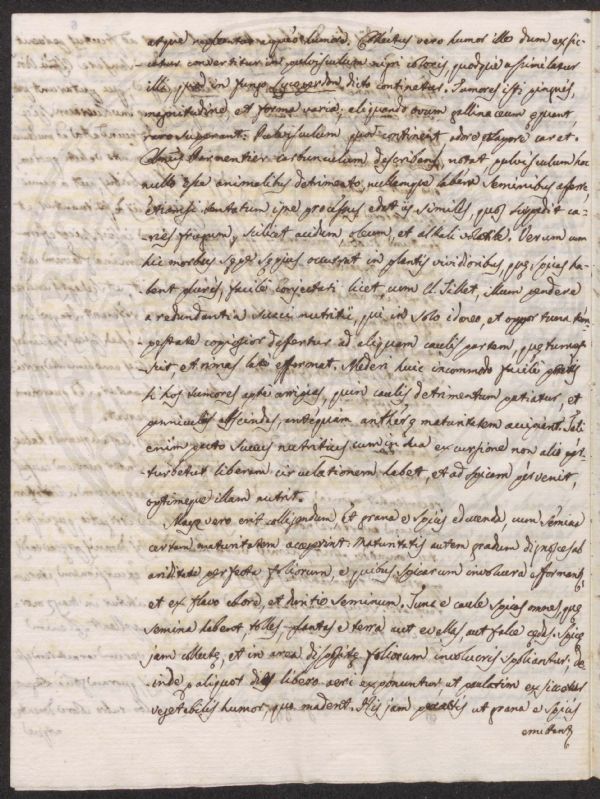 atque replentur aqueo humore. Collectus vero humor ille dum exsic-
catur convertitur in pulvisculum nigri coloris, quodque assimilatur
illi, quod in fungo Lycoperdon dicto continetur. Tumores isti pinques,
magnitudine, et forma varia, aliquando ovum gallinaceum equant,
raro superant. Pulvisculum quod continent odore et sapore caret.
Parmentier carbunculum describens, notat pulvisculum hoc
nullo esse animalibus detrimento, nullamque labem seminibus afferre,
tentatum igne processus edit iis similes, quos suppedit ca-
ries frugum, scilicet acidum, oleum, et alkali volatile. Verum cum
hic morbus sepe sepius occurrat in plantis viridioribus, que spicas ha-
bent plures, facile conjectari licet, cum Cl. Tillet, illum pendere
a redundantia succi nutritii, qui in solo idoneo, et opportuna tem-
pestate copiosior defertur ad aliquam caulis partem, que
et rimas late efformat. Mederi huic incommodo facile poteris
si hos tumores apte arripias, quin caulis detrimentum patiatur, et
penniculos abscindas, antequam anthere maturitatem accipiant. Tali
enim pacto succus nutritius cum in dua excursione non alio per-
turbetur liberam circulationem habet, et ad spicam pervenit,
optimeque illam nutrit.
Mays vero erit colligendum et grana e spicis educenda cum semina
certam maturitatem acceperint. Maturitatis autem gradum dignosces ab
ariditate perfecta foliorum, e quibus spicarum involucra efformantur,
et ex flavo colore, et duritie seminum. Tunc e caule spicas omnes, que
semina habent, tolles plantas e terra aut evellas aut falce cedes. Spice
jam collecte, et in area disposite foliorum involucris spoliantur, de
inde aliquot dies libero aeri exponuntur, et paulatim exsiccetur
vegetabilis humor, quo madent. His jam peractis ut grana e spicis